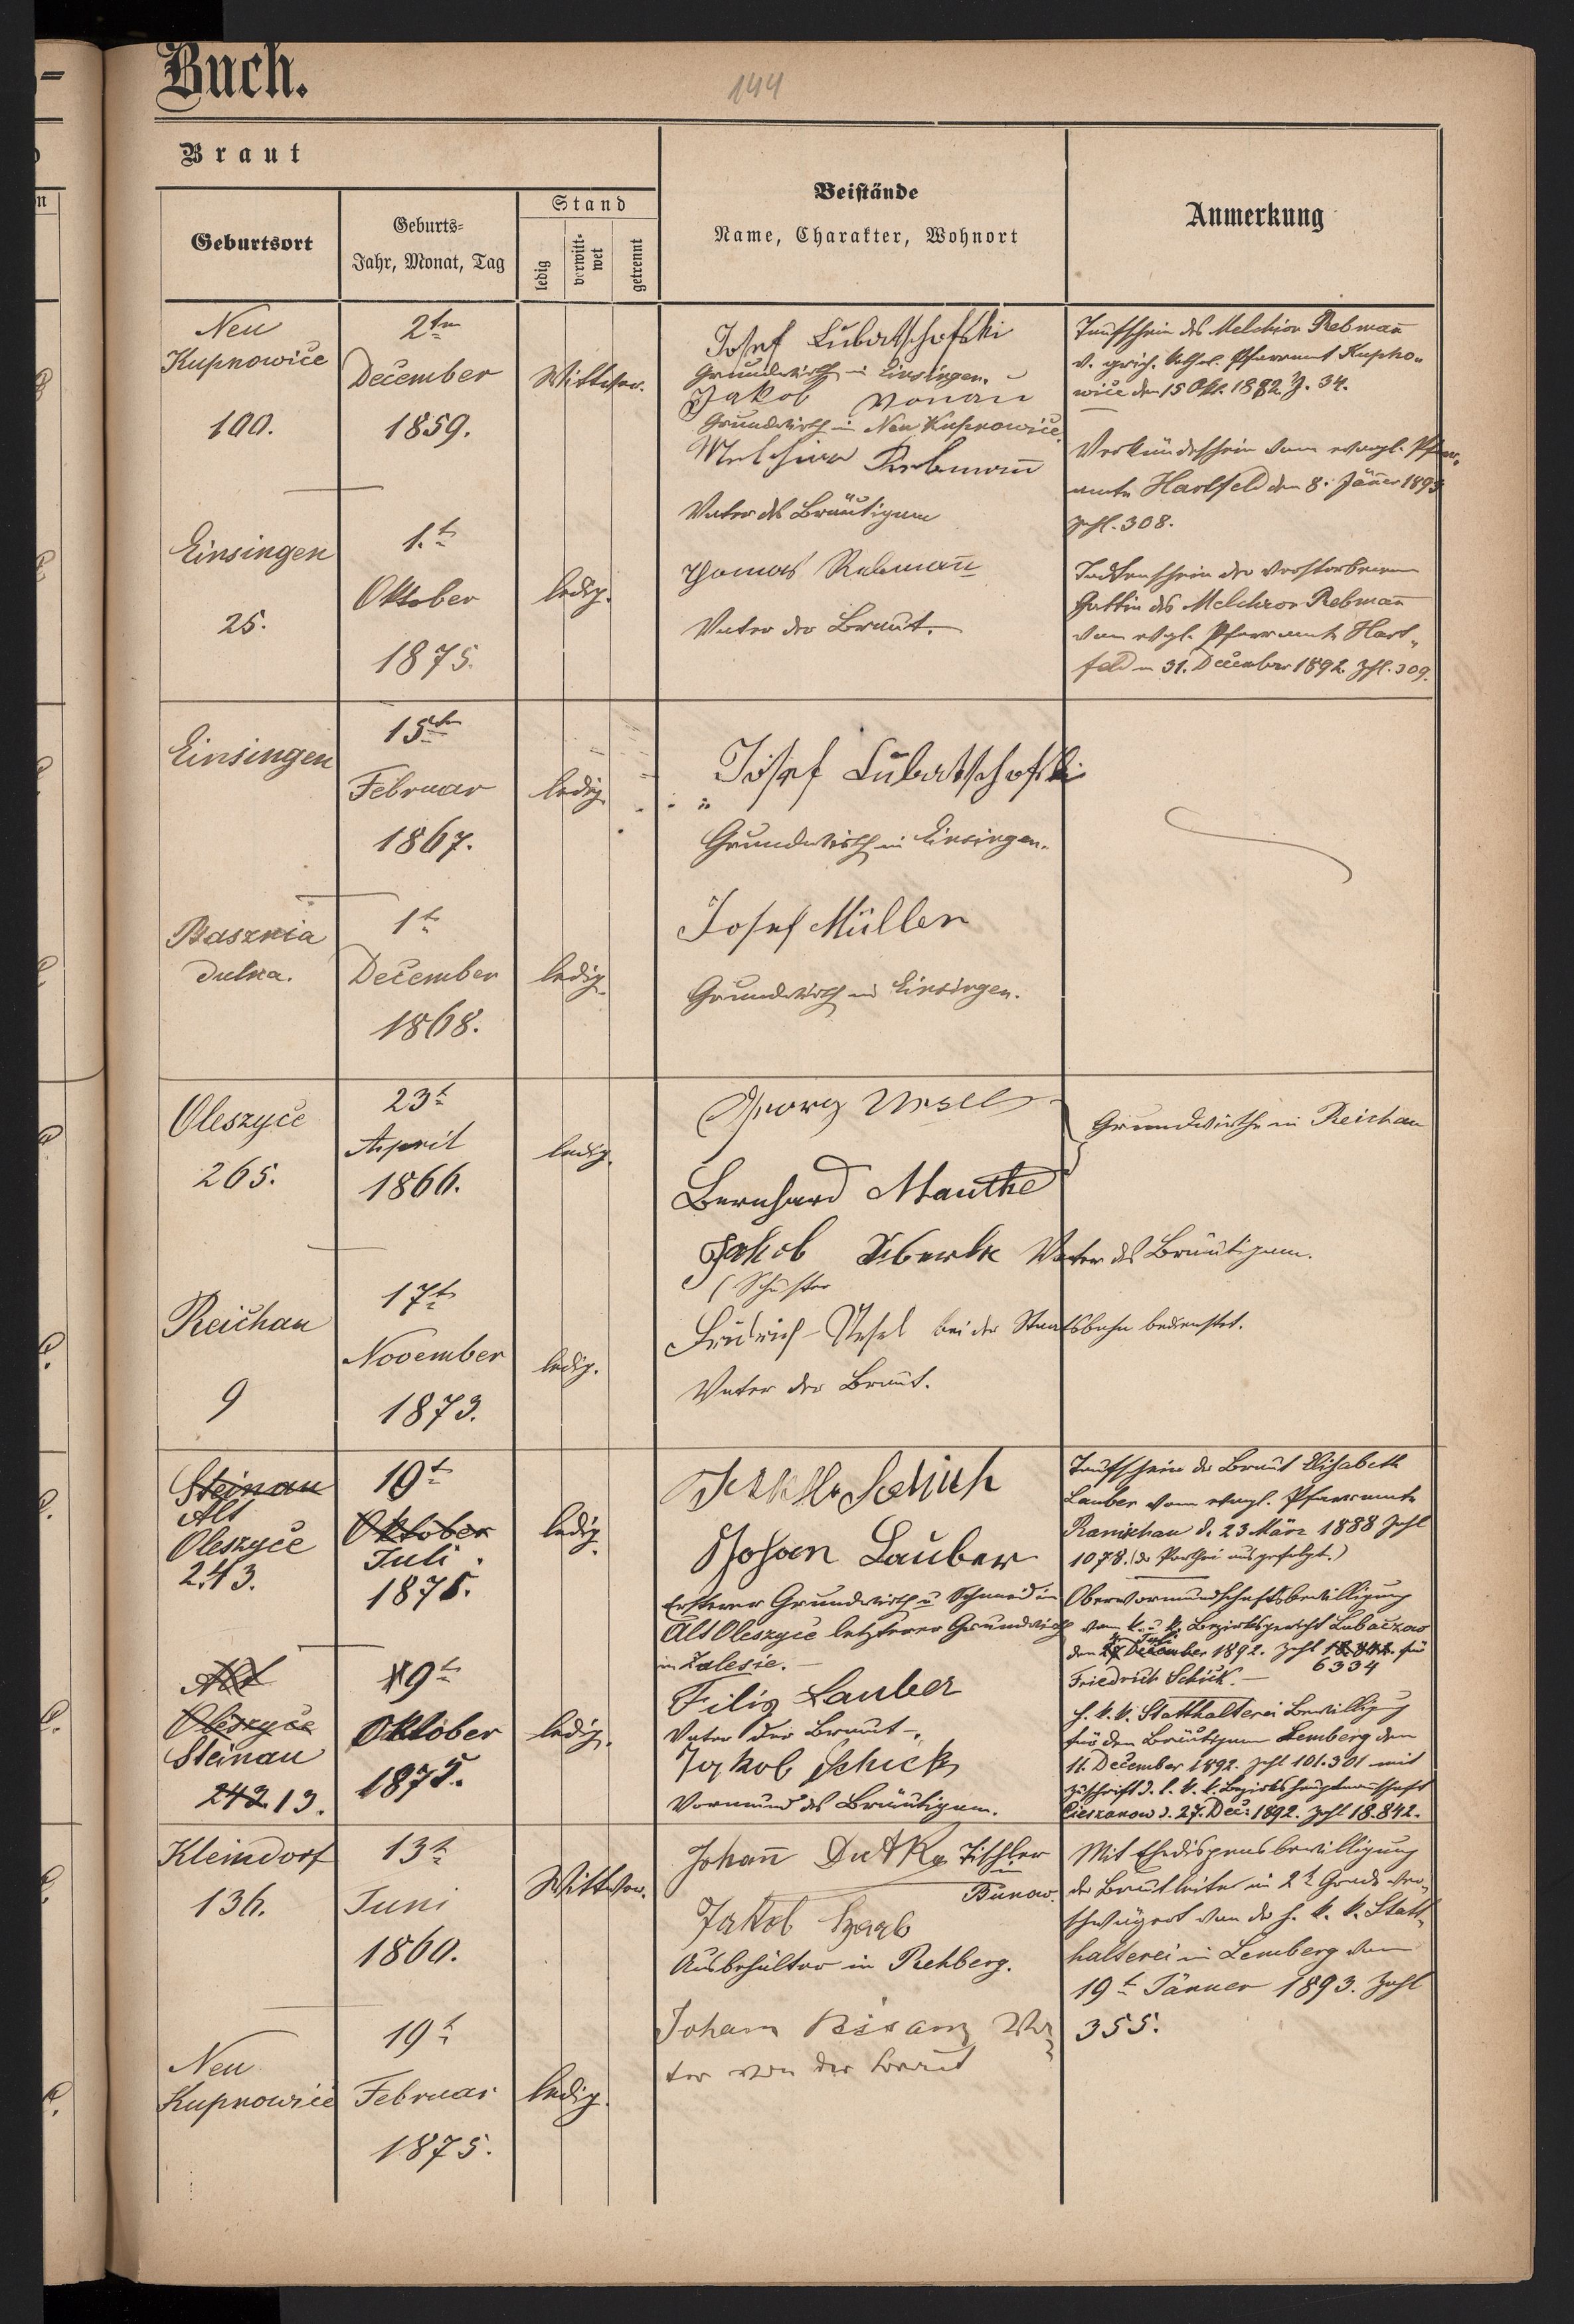 Buch.
144
Braut
Geburtsort
Geburts-
Jahr, Monat, Tag
Stand
ledig
verwitt-
wet
getrennt
Beistände
Name, Charakter, Wohnort
Anmerkung
Neu
Kupnowice
100.
2ten
December
1859.
Wittwer.
Josef Lubatschofski
Grundwirth in Einsingen.
Jakob Vonau
Grundwirth in Neu Kupnowice.
Melchior Rebmann
Vater des Bräutigam
Taufschein des Melchior Rebmann
Pfarramt Kupno-
wice den 15 Okt. 1882. Z. 34.
Verkündschein vom evangl. Pfarr-
amte Hartfeld den 8. Jänner 1893
Zhl. 308.
Einsingen
25.
1.t
Oktober
1875.
ledig.
Thomas Rebmann
Vater der Braut.
Todtenschein der verstorbenen
Gattin des Melchior Rebmann
vom evgl. Pfarramte Hart-
feld 31. December 1892. Zhl. 309.
Einsingen
15ten
Februar
1867.
ledig
Josef Lubatschofski
Grundwirth in Einsingen.
Basznia
dolna.
1t
December
1868.
ledig
Josef Müller
Grundwirth in Einsingen.
Oleszyce
265.
23t
April
1866.
ledig.
Georg
Bernhard Manthe
Grundwirthe in Reichau
Jakob Vater des Bräutigam.
Schuster
Reichau
9
17t
November
1873.
ledig.
Friedrich bei der Staatsbahn bedienstet.
Vater der Braut.
Steinau
Alt
Oleszyce
243.
19t
Oktober
Juli
1871.
ledig
Schick
Johan Lauber
Ersterer Grundwirth u Schmied in
Alt Oleszyce letzterer Grundwirth
in Zalesie.
Taufschein der Braut Elisabeth
Lauber vom evangl. Pfarramte
Ranischau d. 23 März 1888 Zahl
1078. (der Parthei ausgefolgt.)
Obervormundschaftsbewilligung
vom k. u k. Bezirksgericht Lubaczow
Juli
den December 1892. Zahl für
6334
Friedrich Schick.
Alt
Oleszyce
Steinau
243 13.
19t
Oktober
1875.
ledig.
Filip Lauber
Vater der Braut
Jakob Schick
Vormund des Bräutigam.
h. k. k. Statthalterei Bewilligung
für den Bräutigam Lemberg den
11. December 1892. Zahl 101.301 mit
Zuschrift d. l. k. k. Bezirkshauptmannschaft
Cieszanow d. 27. Dec. 1892. Zahl 18.842.
Kleindorf
136.
13t
Juni
1860.
Wittwer.
Johann Dutky Tischler
in
Bunow.
Jakob
Ausbehälter in Rehberg.
Mit Ehedispensbewilligung
der Brautleute in 2t Grade ver-
schwägert von der h. k. k. Statt-
halterei in Lemberg vom
19t Jänner 1893. Zahl
355.
Neu
Kupnowice
19t
Februar
1875.
ledig.
Johann Bisanz Va-
ter von der Braut